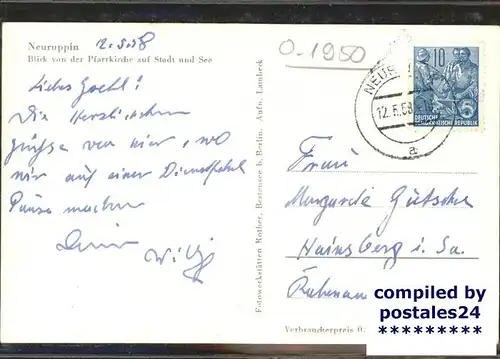 Neuruppin 12.5.58
Blick von der Pfarrkirche auf Stadt und See
Liebes
Die herzlichsten
Grüsse von hier, wo
wir auf einer Dienstfahrt
Pause machen
Dein
Willy
Fotowerkstätten Rother, Bestensee b. Berlin. Aufn. Lambeck
0-1950
NEUR
12.5.58
a
10
5
DEUTSCHE
DEMOKRATISCHE REPUBLIK
Frau
Margarda
Hainsberg i. Sa.
Verbraucherpreis 0,
compiled by
postales24
*********